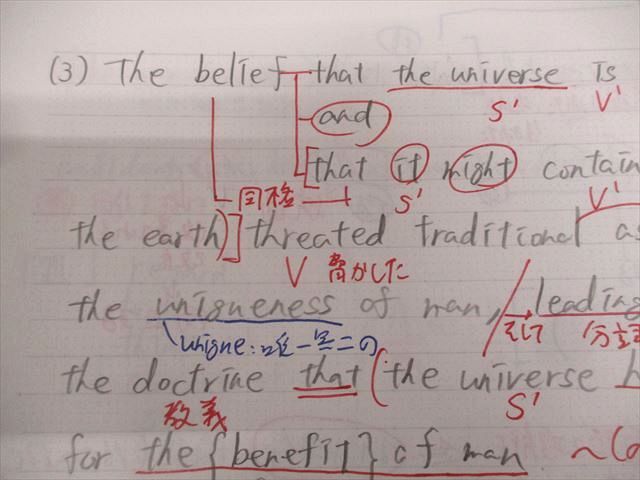 (3) The belief that the universe is
S' V'
and
that it might contain
同格 S' V'
the earth) threated traditional as
V 脅かした
the uniqueness of man, leading
unique:唯一無二の そして 分詞
the doctrine that (the universe h
教義 S'
for the {benefit} of man ~(a